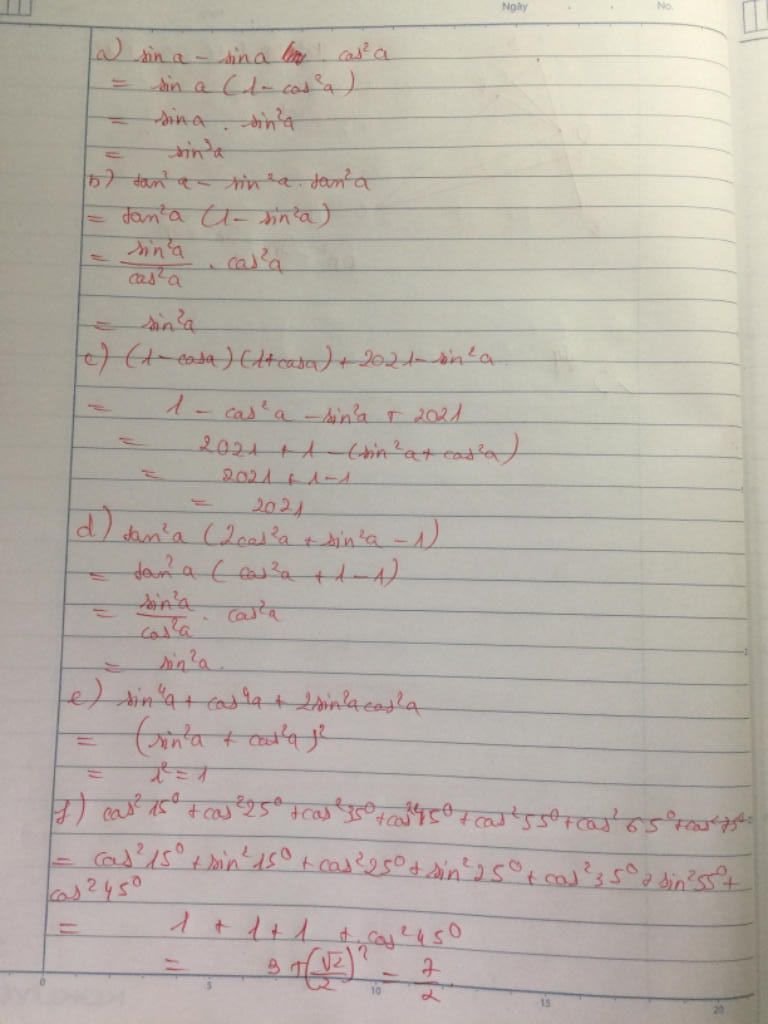 Ngày No.
a) sin a - sin a . cos²a
= sin a (1 - cos²a)
= sin a . sin²a
= sin³a
b) tan²a - sin²a . tan²a
= tan²a (1 - sin²a)
= sin²a/cos²a . cos²a
= sin²a
c) (1 - cosa)(1 + cosa) + 2021 - sin²a
= 1 - cos²a - sin²a + 2021
= 2021 + 1 - (sin²a + cos²a)
= 2021 + 1 - 1
= 2021
d) tan²a (2cos²a + sin²a - 1)
= tan²a (cos²a + 1 - 1)
= sin²a/cos²a . cos²a
= sin²a.
e) sin⁴a + cos⁴a + 2sin²acos²a
= (sin²a + cos²a)²
= 1² = 1
f) cos²15⁰ + cos²25⁰ + cos²35⁰ + cos²45⁰ + cos²55⁰ + cos²65⁰ + cos²75⁰
= cos²15⁰ + sin²15⁰ + cos²25⁰ + sin²25⁰ + cos²35⁰ + sin²55⁰ +
cos²45⁰
= 1 + 1 + 1 + cos²45⁰
= 3 + (√2/2)² = 7/2
0 5 10 15 20